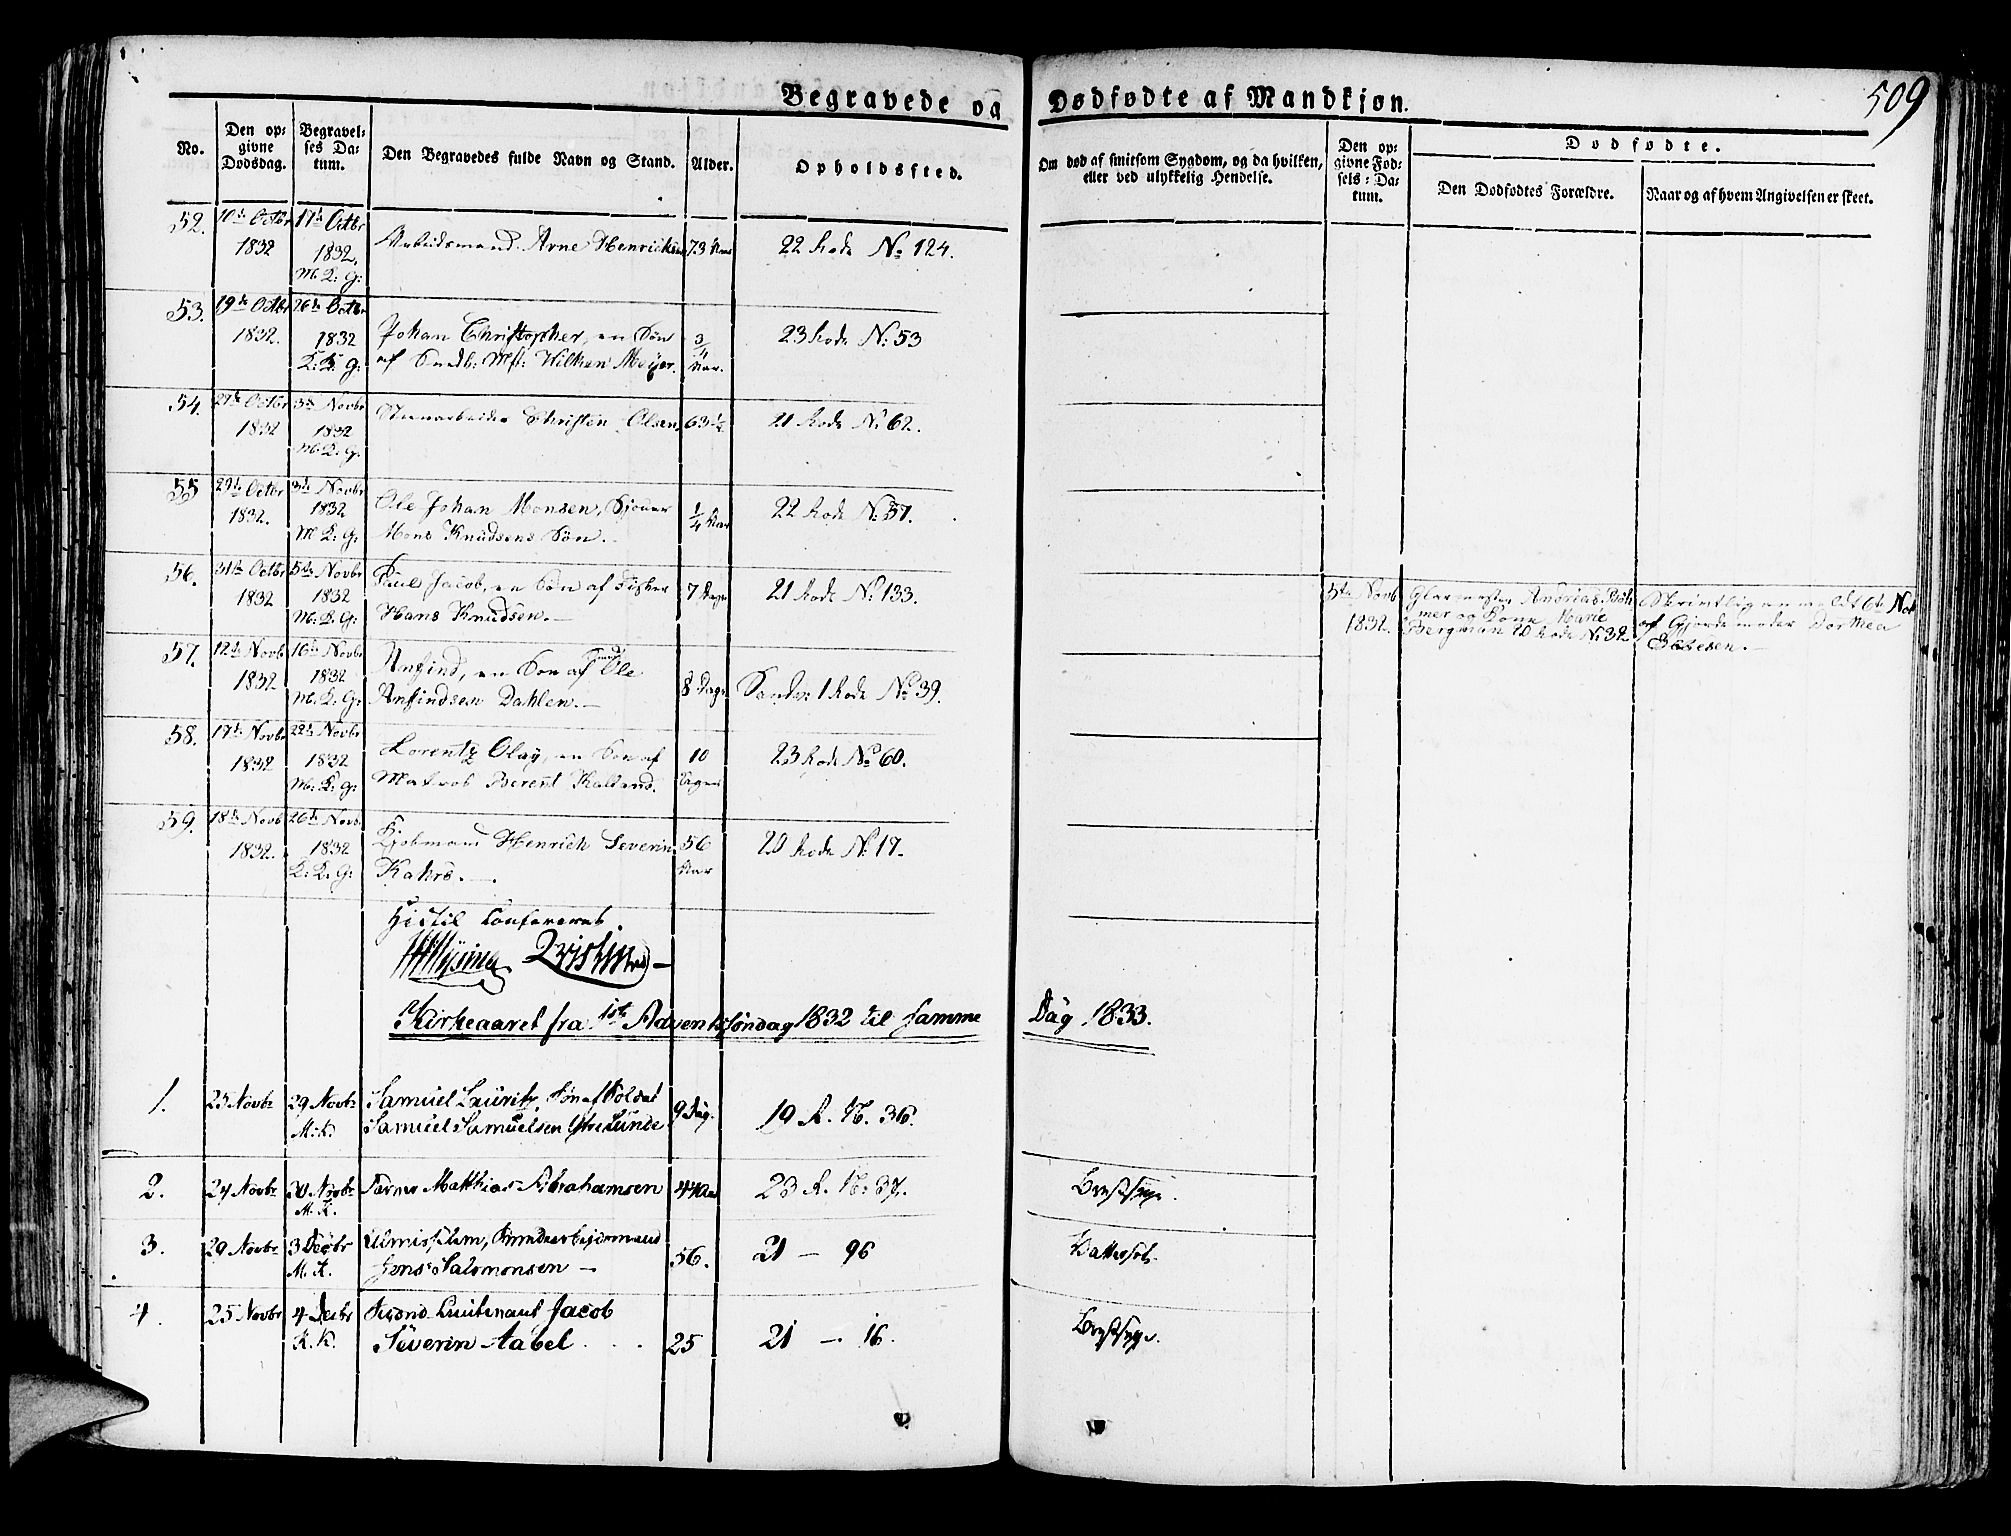 Begravede og Dødfødte af Mandkjøn.
509
No.
Den opgivne Dødsdag.
Begravelses Datum.
Den Begravedes fulde Navn og Stand.
Alder.
Opholdssted.
Om død af smitsom Sygdom, og da hvilken, eller ved ulykkelig Hendelse.
Den opgivne Fødsels-Datum.
Dødfødte.
Den Dødfødtes Forældre.
Naar og af hvem Angivelsen er skeet.
52. 10de Octbr 17de Octbr
1832 1832. Arbeidsmand Arne Henricksen 73 Aar 22 Rode No 124.
M. K. G:
53. 19de Octbr 26de Octbr
1832. 1832 Johan Christopher, en Søn 3/4 23 Rode N: 53
K. K. G: af Snedk: Mst: Wilken Meyer. Aar.
54. 27de Octbr 3de Novbr Christen Olsen 63 1/2 21 Rode N: 62.
1832 1832
M. K. G:
55 29de Octbr 3de Novbr
1832. 1832 Ole Johan Monsen, Sjouer 1/4 Aar 22 Rode N: 37.
M K: G: Mons Knudsens Søn.
56. 31te Octbr 5te Novbr Paul Jacob, en Søn af Fisker 7 Dage 21 Rode N: 133.
1832 1832
M. K: G: Hans Knudsen.
5te Novb 1832.
Glarmester Andreas Böhmer og Kone Marie Bergman 20 Rode N: 32
Skriftlig anmeldt 6te Nov af Gjordemoder Dorthea
57. 12te Novb 16de Novbr Anfind, en Søn af Ole
1832 1832
M. K. G: Anfindsen Dahlen. 8 Dage Sandv: 1 Rode No 39.
58. 17de Novbr 22de Novbr
1832 1832 Lorentz Olay, en Søn af 10 23 Rode No 60.
M. K: G: Matros Berent Kalland. Dage
59. 18de Novb 26de Novb.
1832. 1832 Kjøbmand Henrich Severin 56 20 Rode N: 17.
K: K. G: Kahrs. Aar
Hidtil Confereret.
Kirkeaaret fra 1ste Advents Søndag 1832 til samme Dag 1833.
1. 23 Novbr 29 Novbr Samuel Lauritz, Søn af Soldat 9 Dag. 19 R. N. 36.
M. K. Samuel Samuelsen
2. 24 Novbr 30 Novbr Matthias Abrahamsen 44 Aar 23 R. N: 37. Brystsyge.
M. K.
3. 29 Novbr 3 Decbr Almisselem, 56. 21 — 96 Vattersot.
M. K. Jens Salomonsen —
4. 25 Novbr 4 Decbr Second Lieutenant Jacob
K. K. Severin Aabel . . . 25 21 — 16. Brystsyge.